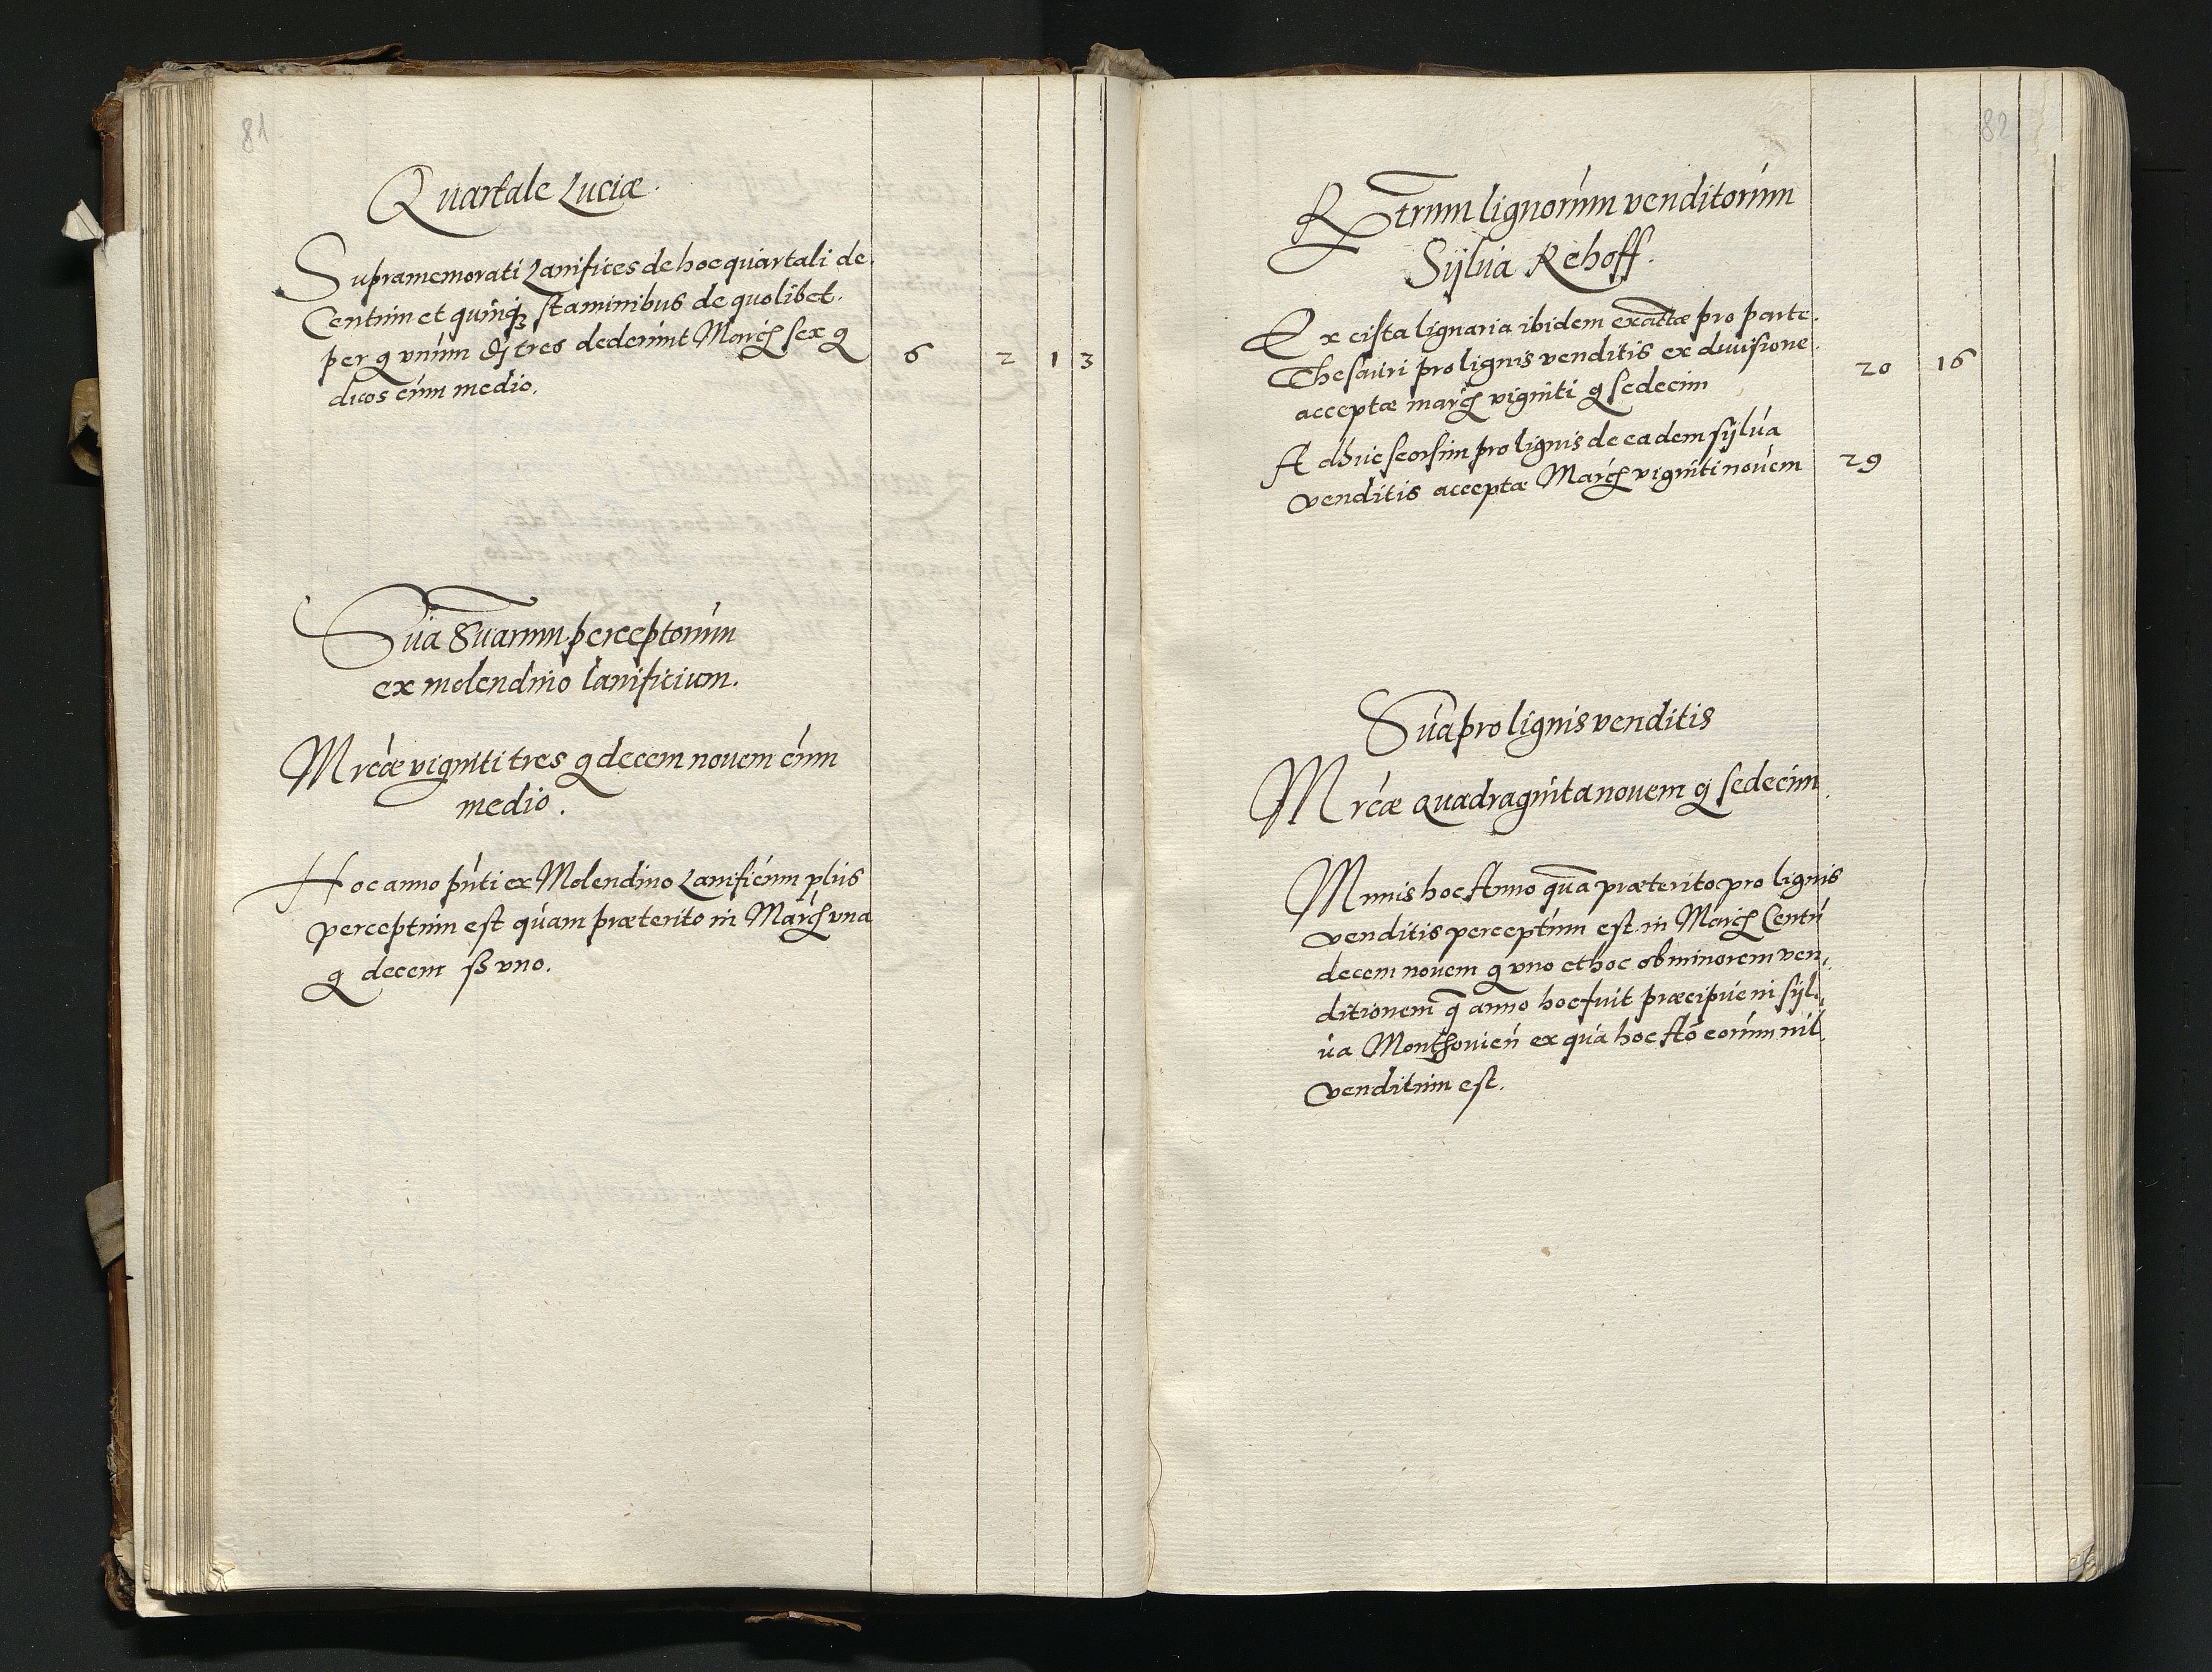 81
Quartale Luciæ.
Supramemorati Lanifices de hoc quartali de
Centum et quinq; staminibus de quolibet
per g unum tres dederunt March sex g
duos cum medio.
6 2 1 3
Sua Suarum perceptorum
ex molendino lanificium.
Mrcæ viginti tres g decem novem cum
medio.
Hoc anno puti ex Molendino Lanificum plus
perceptum est quam præterito in March vna
g decem ß vno.
82
Rtrum lignorum venditorum
Sylva Rehoff.
Ex cista lignaria ibidem exactæ pro parte
Thesauri pro lignis venditis ex divisione
acceptæ march viginti g sedecim
20 16
Adhuc seorsim pro lignis de eadem sylva
venditis acceptæ March viginti novem
29
Sua pro lignis venditis
Mrcæ quadraginta novem g sedecim.
Minus hoc Anno qua præterito pro lignis
venditis perceptum est in March Centu
decem novem g vno et hoc ob minorem ven,
ditionem q anno hoc fuit præcipue in syl,
va Monthovien ex qua hoc Ao eorum nil
venditum est.